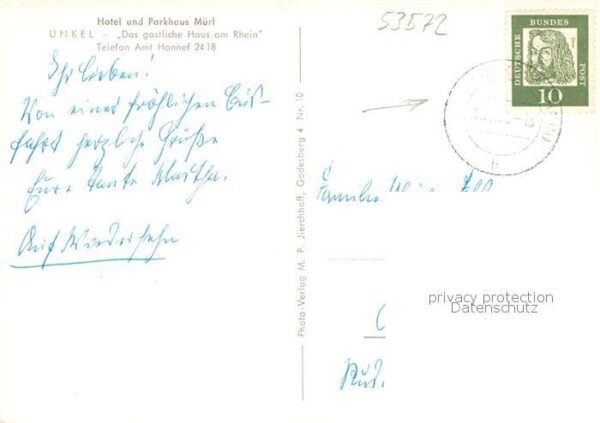 Hotel und Parkhaus Mürl
UNKEL - „Das gastliche Haus am Rhein"
Telefon Amt Honnef 2418
53572
Ihr Lieben!
Von einer fröhlichen Bus-
fahrt herzliche Grüße
Eure Tante Martha.
Auf Wiedersehn
Photo-Verlag M. P. Sierchhoff, Godesberg 4 Nr. 10
DEUTSCHE BUNDES POST
10
b
Familie
privacy protection
Datenschutz